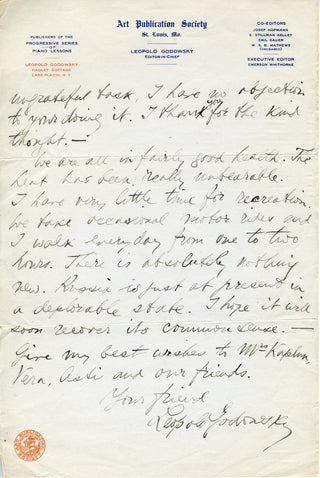 Art Publication Society
St. Louis, Mo.
LEOPOLD GODOWSKY
EDITOR-IN-CHIEF
PUBLISHERS OF THE
PROGRESSIVE SERIES
OF
PIANO LESSONS
LEOPOLD GODOWSKY
HAGLET COTTAGE
LAKE PLACID, N. Y.
CO-EDITORS
JOSEF HOFMANN
E. STILLMAN KELLEY
EMIL SAUER
W. S. B. MATHEWS
(DECEASED)
EXECUTIVE EDITOR
EMERSON WHITHORNE
ungrateful task, I have no objection
to your doing it. I thank you for the kind
thought.—
We are all in fairly good health. The
heat has been really unbearable.
I have very little time for recreation.
We take occasional motor rides and
I walk everyday from one to two
hours. There is absolutely nothing
new. Russia is just at present in
a deplorable state. I hope it will
soon recover its common sense. —
Give my best wishes to Mrs Kaplun,
Vera, Asti and our friends.
Your friend
Leopold Godowsky